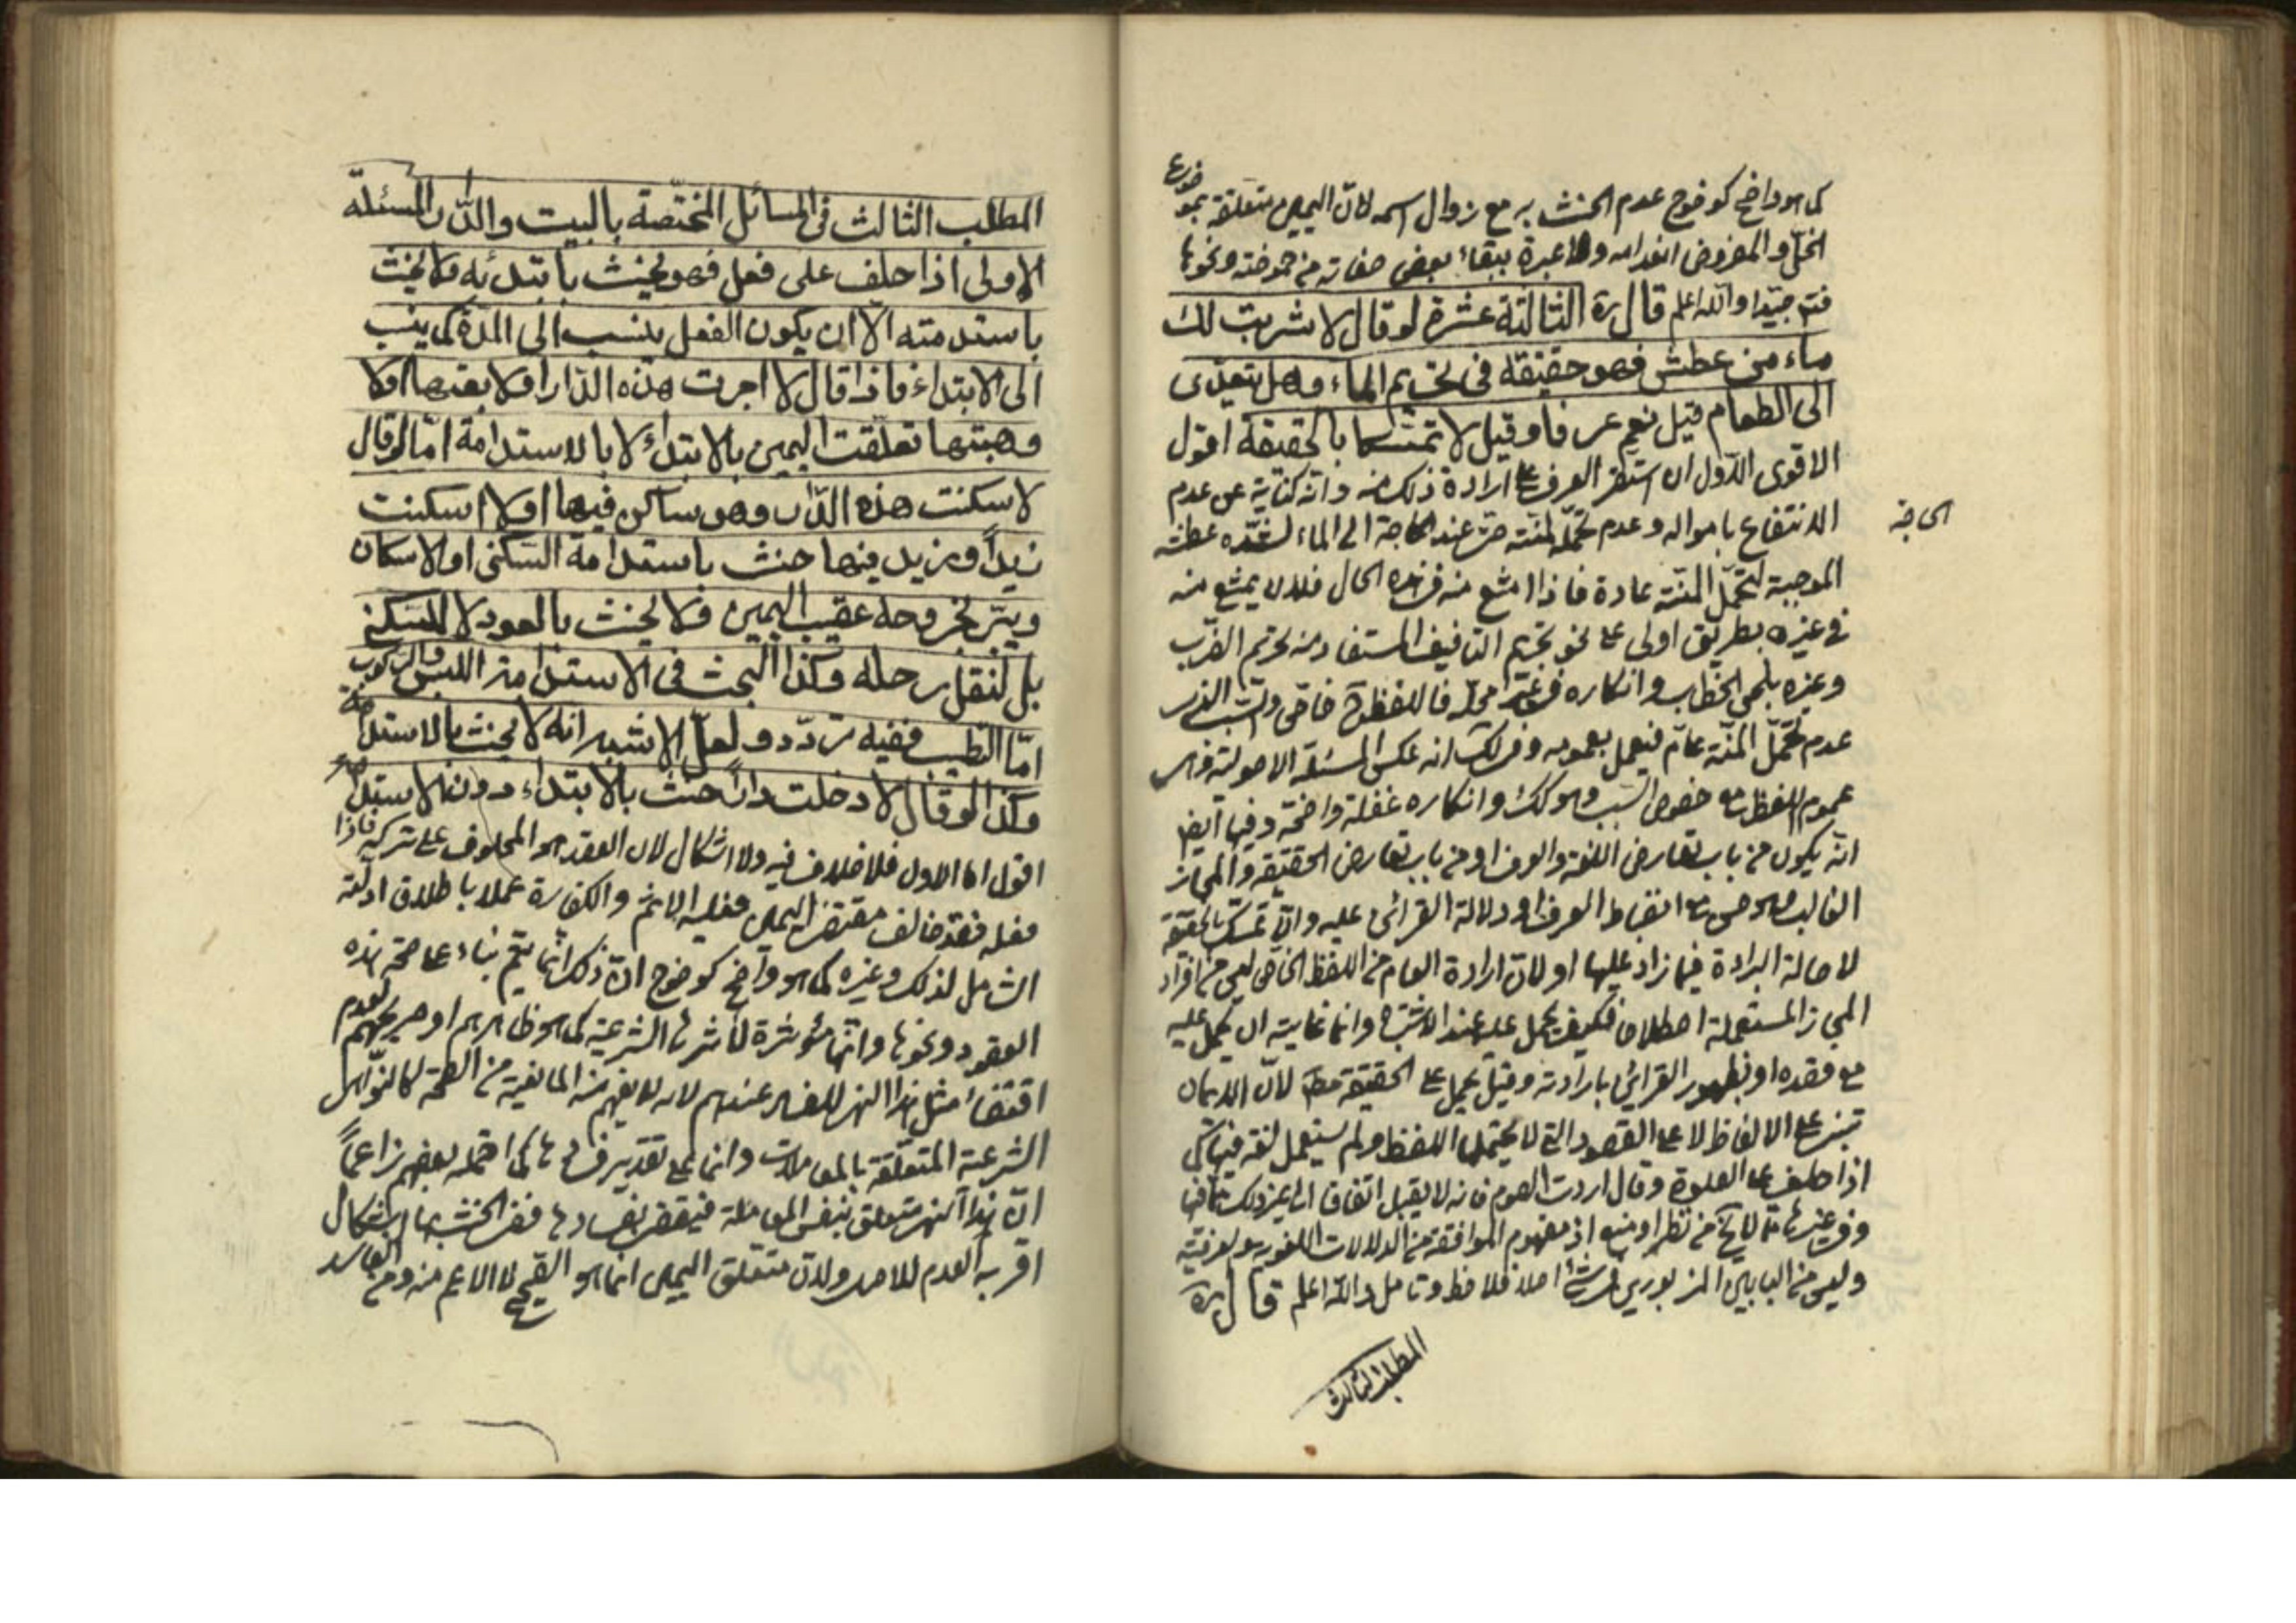 كما هو واضح كوضوح عدم الحنث به مع زوال اسمه لانّ اليمين متعلقة بموضوع
الخلّ والمفروض انعدامه ولا عبرة ببقاء بعض صفاته من حموضته ونحوها
جيّدا والله اعلم قال ره الثالثة عشرة لو قال لا شربت لك
ماء من عطش فهو حقيقة في تحريم الماء وهل يتعدّى
الى الطعام قيل نعم عرفا وقيل لا تمسّكا بالحقيقة اقول
الاقوى الاول ان استقر العرف على ارادة ذلك منه وانّه كناية عن عدم
الانتفاع بامواله وعدم تحمّل المنّته حتى عند الحاجة الى الماء لشدّه عطشه
الموجبة لتحمّل المنّته عادة فاذا امتنع منه في هذه الحال فلان يمتنع منه
في غيره بطريق اولى على نحو تحريم التافيف المستفاد منه تحريم الضرب
وغيره بلحن الخطاب وانكاره في غير محلّه فاللفظ ح خاص والسبب الذي هو
عدم تحمّل المنّته عامّ فيعمل بعمومه وفي لك انه عكس المسئلة الاصولية وهي
عموم اللفظ مع خصوص السبب وهو كك وانكاره غفلة واضحة وفيها ايضا
انّه يكون من باب تعارض اللغة والعرف او من باب تعارض الحقيقة والمجاز
الغالب وهو حسن مع انضباط العرف او دلالة القرائن عليه والّا تمسّك بالحقيقة
لاصالة البراءة فيما زاد عليها او لانّ ارادة العام من اللفظ الخاص ليس من افراد
المجاز المستعملة اصطلاحا فكيف يحمل عليه عند الاشتباه وانما غايته ان يحمل عليه
مع فقده او بظهور القرائن بارادته وقيل يحمل على الحقيقة مط لانّ الايمان
تبنى على الالفاظ لا على القصود التي لا يحتملها اللفظ ولم يستعمل لغة فيها كما
اذا حلف على الصلوة وقال اردت الصوم فانه لا يقبل اتفاقا الى غير ذلك مما فيها
وفي غيرها مما لا يخ من نظر او منع اذ مفهوم الموافقة من الدلالات اللغوية والعرفية
وليس من البابين المزبورين في شئ اصلا فلاحظ وتامل والله اعلم قال ره
الحاجة
المطلب الثالث
المطلب الثالث في المسائل المختصّة بالبيت والدار المسئلة
الاولى اذا حلف على فعل فهو يحنث بابتدائه ولا يحنث
باستدامته الّا ان يكون الفعل ينسب الى المدّة كما ينسب
الى الابتداء فاذا قال لا اجرت هذه الدّار او لا بعتها او لا
وهبتها تعلّقت اليمين بالابتداء لا بالاستدامة امّا لو قال
لا سكنت هذه الدّار وهو ساكن فيها او لا اسكنت
زيداً وزيد فيها حنث باستدامة السّكنى او الاسكان
ويبرّ بخروجه عقيب اليمين ولا يحنث بالعود لا للسكنى
بل لنقل رحله وكذا البحث في الاستدامة اللبس والركوب
امّا الطيب ففيه تردّد ولعلّ الاشبه انه لا يحنث بالاستدامة
وكذا لو قال لا دخلت داراً حنث بالابتداء دون الاستدامة
اقول اما الاول فلا خلاف فيه ولا اشكال لان العقد هو المحلوف على تركه فاذا
فعله فقد خالف مقتضى اليمين فعليه الاثم والكفارة عملا باطلاق ادلّته
الشامل لذلك وغيره كما هو واضح كوضوح انّ ذلك انّما يتم بناء على صحّة هذه
العقود ونحوها وانّها مؤثرة لتاثيرها الشرعية كما هو ظاهرهم او صريحهم لعدم
اقتضاء مثل هذا النهي للفساد عندهم لانه لا يفهم منه المانعية من الصحّة كالنّواهي
الشرعية المتعلّقة بالمعاملات وانما على تقدير فسادها كما احتمله بعضهم زاعماً
انّ هذا النهي متعلق بنفس المعاملة فيقضى بفسادها ففي الحنث بها اشكال
اقربه العدم للاصل ولانّ متعلّق اليمين انما هو الصّحيح لا الاعم منه ومن الفاسد